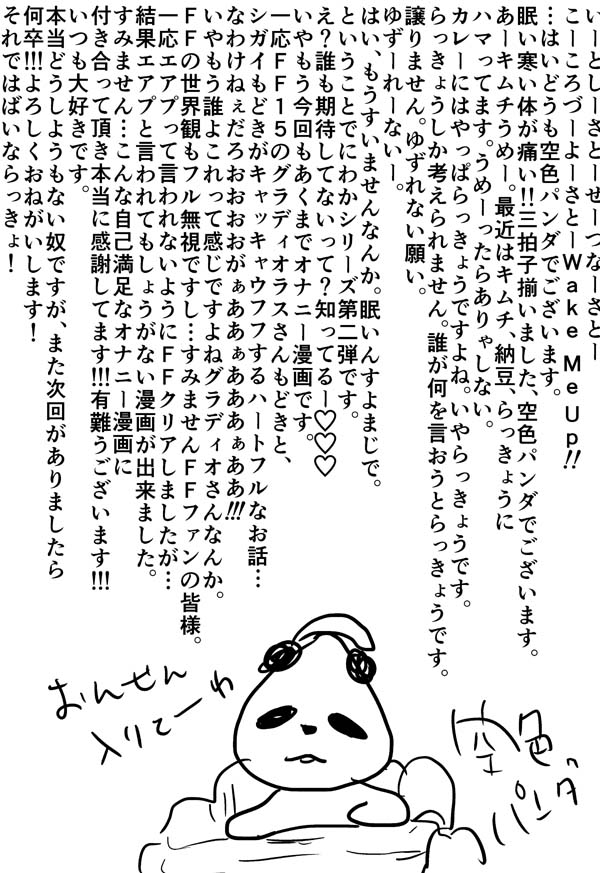 いーとしーさとーせーつなーさとー
こーころづーよーさとーWake Me Up!!
…はいどうも空色パンダでございます。
眠い寒い体が痛い!!三拍子揃いました、空色パンダでございます。
あーキムチうめー。最近はキムチ、納豆、らっきょうに
ハマってます。うめーったらありゃしない。
カレーにはやっぱらっきょうですよね。いやらっきょうです。
らっきょうしか考えられません。誰が何を言おうとらっきょうです。
譲りません。ゆずれない願い。
ゆずーれーないー。
はい、もうすいませんなんか。眠いんすよまじで。
ということでにわかシリーズ第二弾です。
え?誰も期待してないって?知ってるー♡♡♡
いやもう今回もあくまでオナニー漫画です。
一応FF15のグラディオラスさんもどきと、
シガイもどきがキャッキャウフフするハートフルなお話…
なわけねぇだろおおおおがぁああぁあああぁああ!!!
いやもう誰よこれって感じですよねグラディオさんなんか。
FFの世界観もフル無視ですし…すみませんFFファンの皆様。
一応エアプって言われないようにFFクリアしましたが…
結果エアプと言われてもしょうがない漫画が出来ました。
すみません…こんな自己満足なオナニー漫画に
付き合って頂き本当に感謝してます!!!有難うございます!!!
いつも大好きです。
本当どうしようもない奴ですが、また次回がありましたら
何卒!!!よろしくおねがいします!
それではばいならっきょ!
おんせん
入りてーわ
空色
パンダ